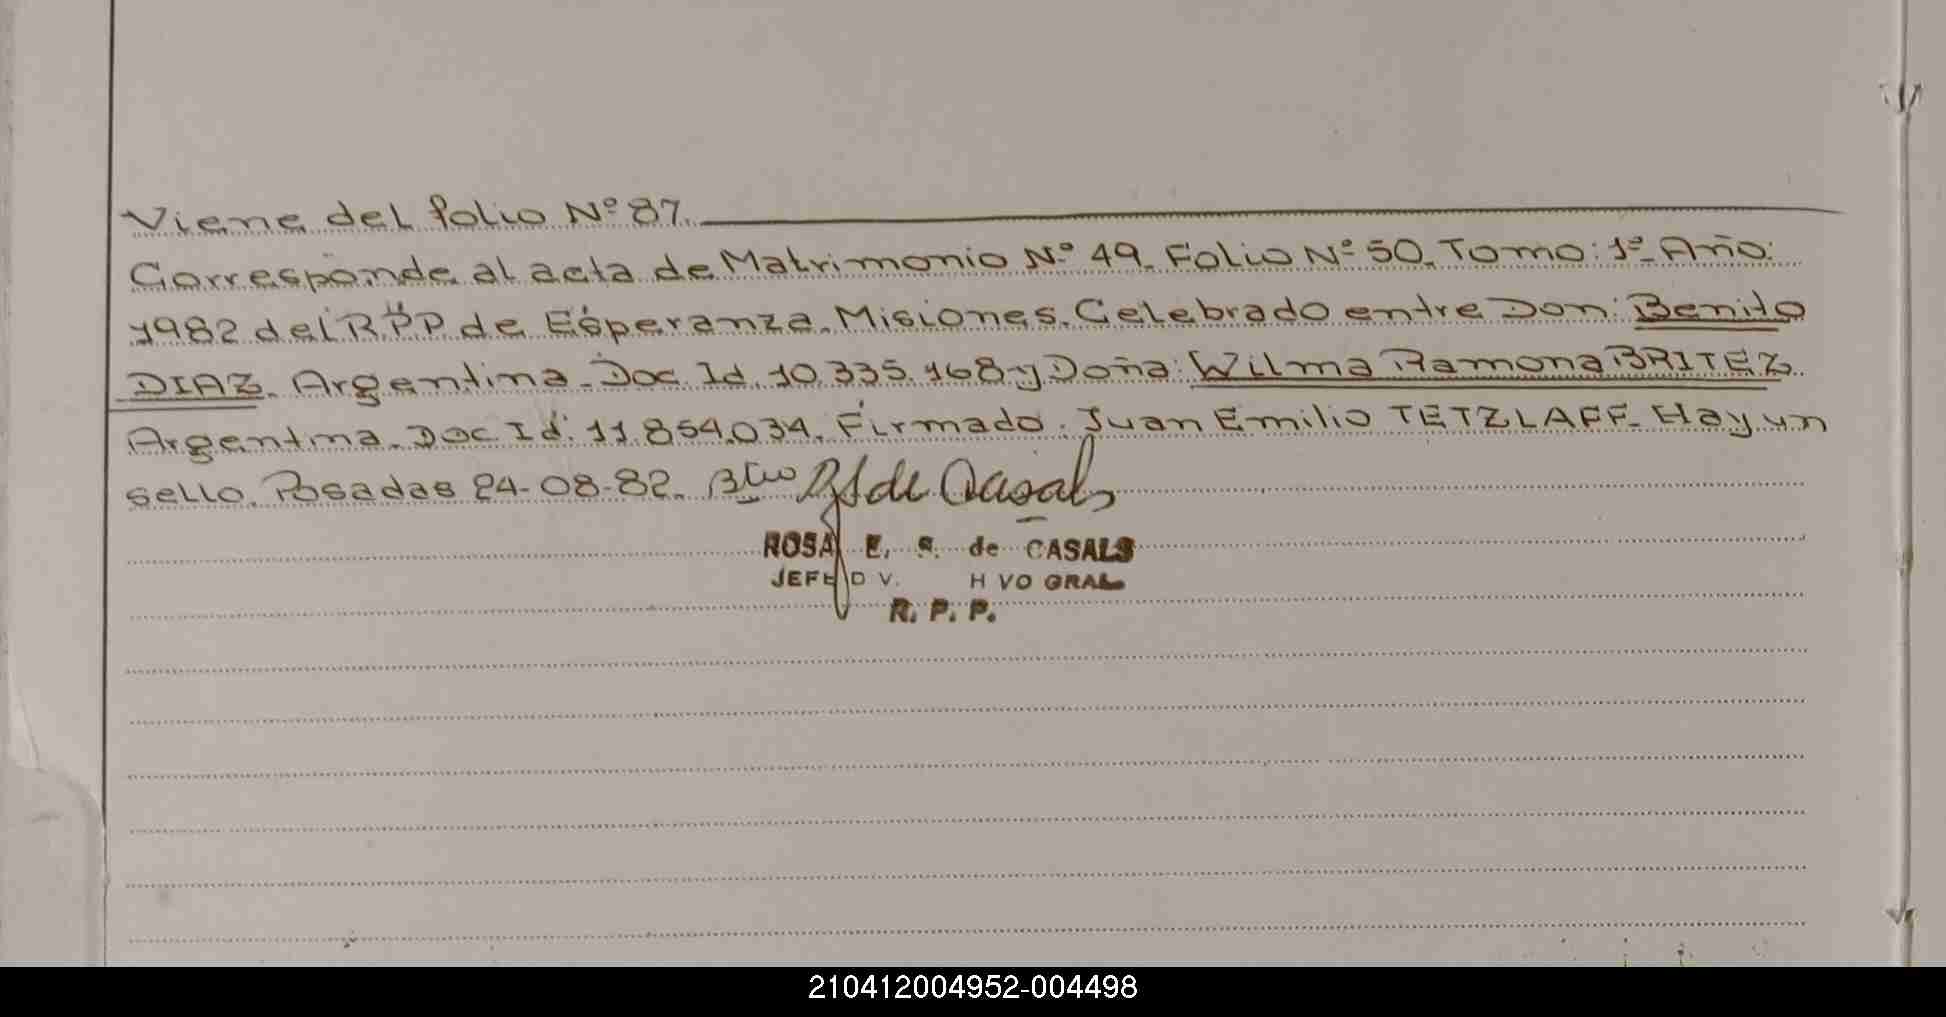 Viene del folio Nº 87.
Corresponde al acta de Matrimonio Nº 49. Folio Nº 50. Tomo: 1º Año:
1982 del R.P.P. de Esperanza. Misiones. Celebrado entre Don: Benito
DIAZ. Argentina. Doc Id. 10.335.168 y Doña: Wilma Ramona BRITEZ.
Argentina. Doc Id: 11.854.034. Firmado: Juan Emilio TETZLAFF. Hay un
sello. Posadas 24-08-82. de Casals
ROSA E. S. de CASALS
JEFE D V. H VO GRAL
R. P. P.
210412004952-004498